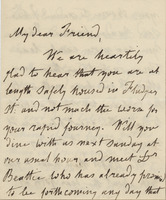 My dear Friend,
We are heartily
glad to hear that you are at
length safely housed in Fludyer
St. and not much the worse for
your rapid journey. Will you
dine with us next Sunday at
our usual hour, and meet Dr
Beattie who has already promised
to be forthcoming any day that